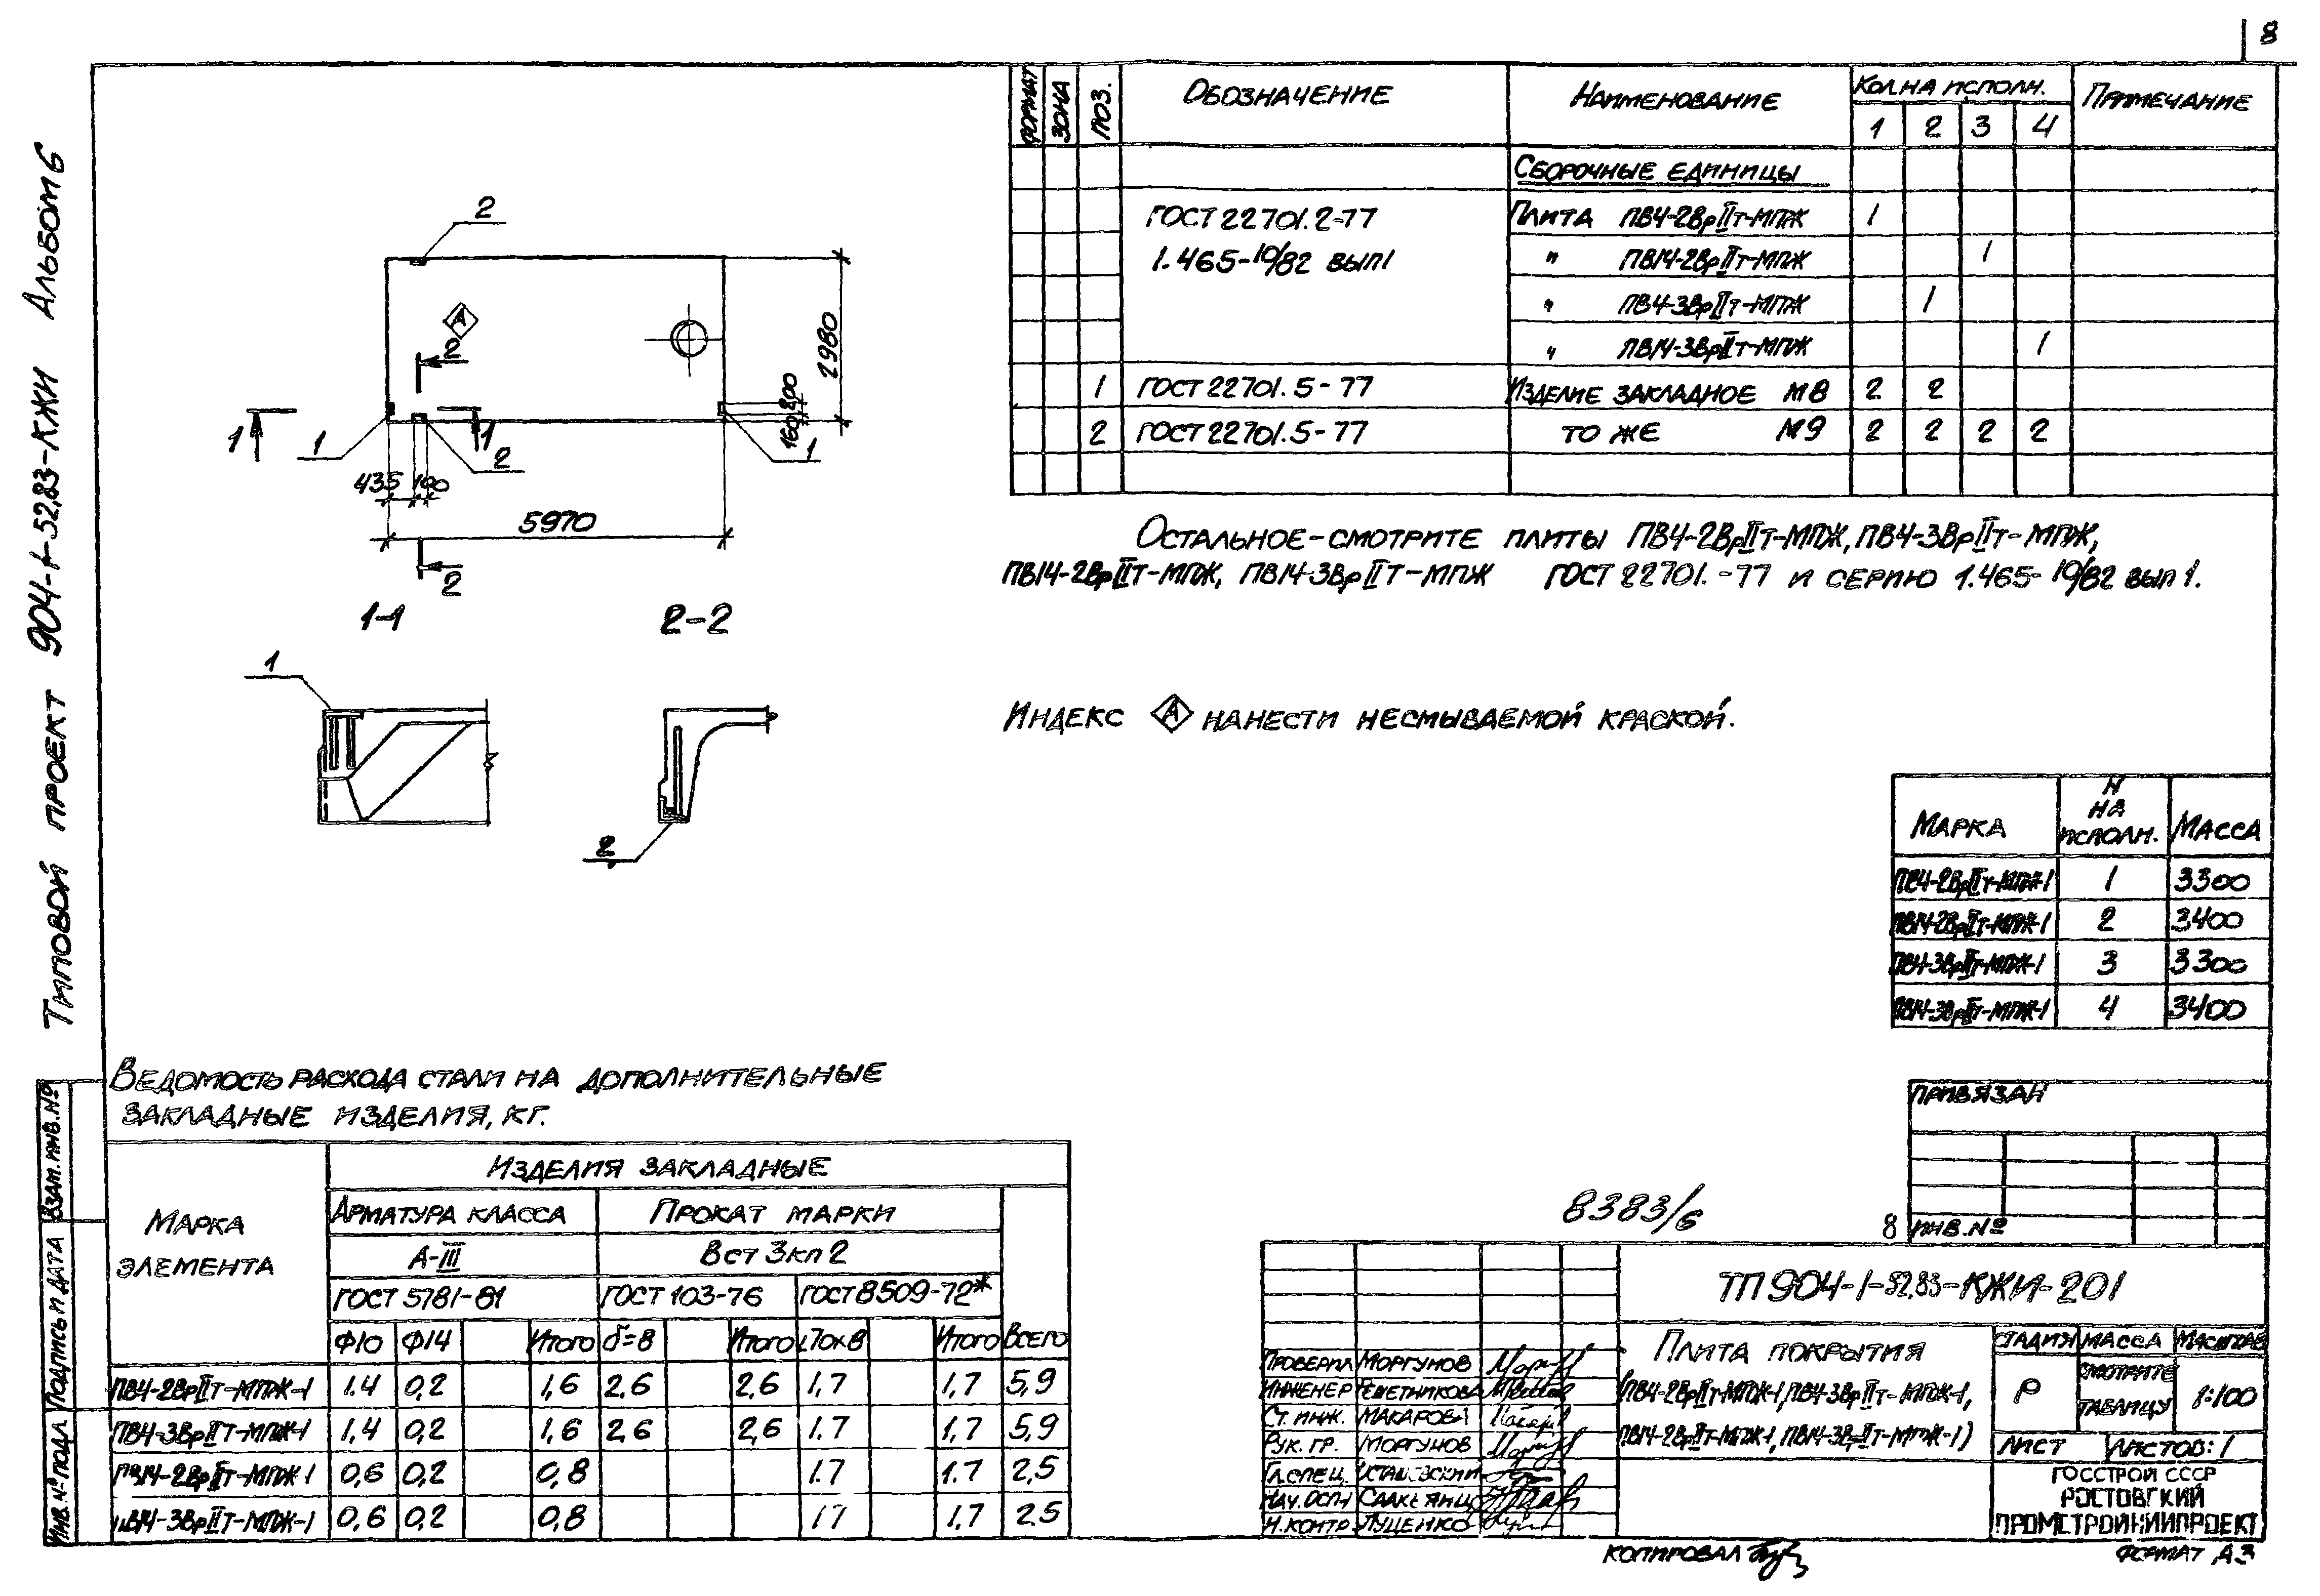 8
Типовой проект 904-1-52.83-КЖИ Альбом 6
2
А
2
2980
200
160
1
1
1
2
1
435 100
5970
2
1-1
2-2
1
2
Формат Зона Поз. Обозначение Наименование Кол.на исполн. Примечание
1 2 3 4
Сборочные единицы
ГОСТ 22701.2-77 Плита ПВ4-2ВрIIт-МПЖ 1
1.465-10/82 вып1 " ПВ14-2ВрIIт-МПЖ 1
" ПВ4-3ВрIIт-МПЖ 1
" ПВ14-3ВрIIт-МПЖ 1
1 ГОСТ 22701.5-77 Изделие закладное М8 2 2
2 ГОСТ 22701.5-77 То же М9 2 2 2 2
Остальное-смотрите плиты ПВ4-2ВрIIт-МПЖ, ПВ4-3ВрIIт-МПЖ,
ПВ14-2ВрIIт-МПЖ, ПВ14-3ВрIIт-МПЖ ГОСТ 22701.-77 и серию 1.465-10/82 вып 1.
Индекс А нанести несмываемой краской.
Марка Н на исполн. Масса
ПВ4-2ВрIIт-МПЖ-1 1 3300
ПВ14-2ВрIIт-МПЖ-1 2 3400
ПВ4-3ВрIIт-МПЖ-1 3 3300
ПВ14-3ВрIIт-МПЖ-1 4 3400
Ведомость расхода стали на дополнительные
закладные изделия, кг.
Марка элемента
Изделия закладные
Арматура класса Прокат марки
А-III Вст 3кп2
ГОСТ 5781-81 ГОСТ 103-76 ГОСТ 8509-72*
Ф10 Ф14 Итого δ=8 Итого L70х8 Итого Всего
ПВ4-2ВрIIт-МПЖ-1 1.4 0,2 1,6 2,6 2,6 1,7 1,7 5,9
ПВ4-3ВрIIт-МПЖ-1 1,4 0,2 1,6 2,6 2,6 1.7 1,7 5,9
ПВ14-2ВрIIт-МПЖ-1 0,6 0,2 0,8 1.7 1.7 2,5
ПВ14-3ВрIIт-МПЖ-1 0,6 0,2 0,8 1.7 1,7 2.5
Взам.инв.№
Подпись и дата
Инв.№ подл
Привязан
8383/6
8 Инв.№
ТП 904-1-52.83-КЖИ-201
Проверил Моргунов
Инженер Решетникова
Ст. инж. Макарова
Рук. гр. Моргунов
Гл.спец.
Нач.
Н.контр Луценко
Плита покрытия
(ПВ4-2ВрIIт-МПЖ-1, ПВ4-3ВрIIт-МПЖ-1,
ПВ14-2ВрIIт-МПЖ-1, ПВ14-3ВрIIт-МПЖ-1)
Стадия Масса Масштаб
Р смотрите таблицу 1:100
Лист Листов: 1
Госстрой СССР
Ростовский
Промстройниипроект
Копировал
Формат А3